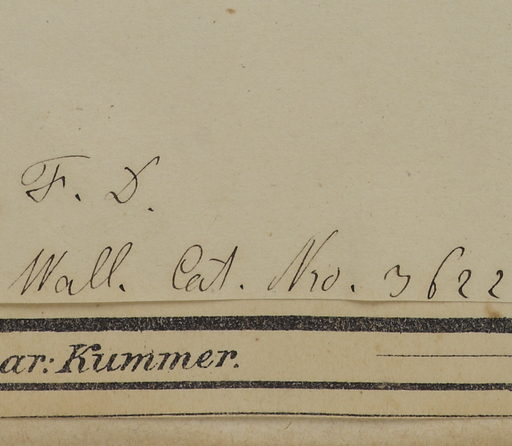 F. D.
Wall. Cat. Nro. 3622
ar: Kummer.